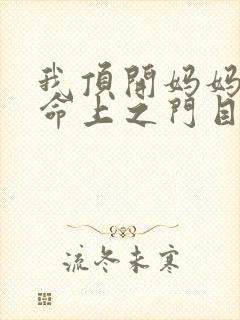 我頂開妈妈
命上之門目
流冬未寒